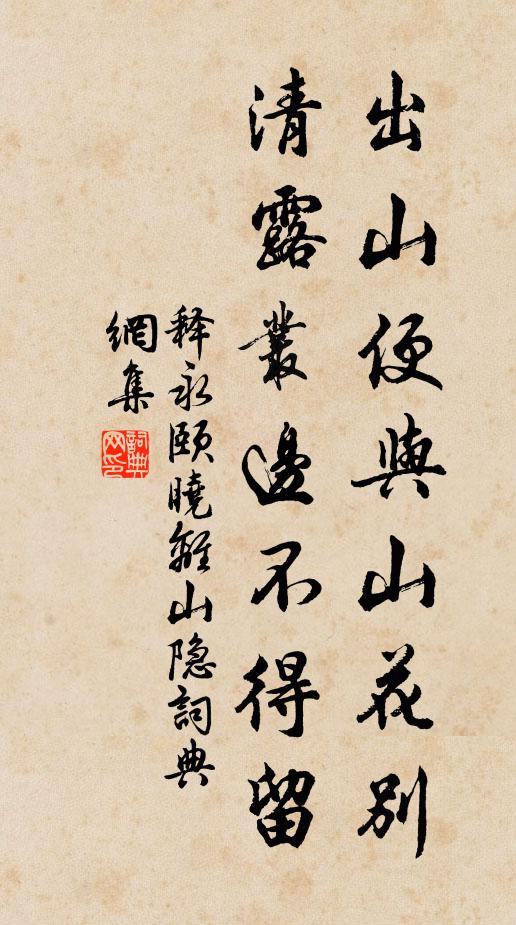 出山便與山花別
清露叢邊不得留
释永頤曉離山隐詞典
網集
詞典
网印